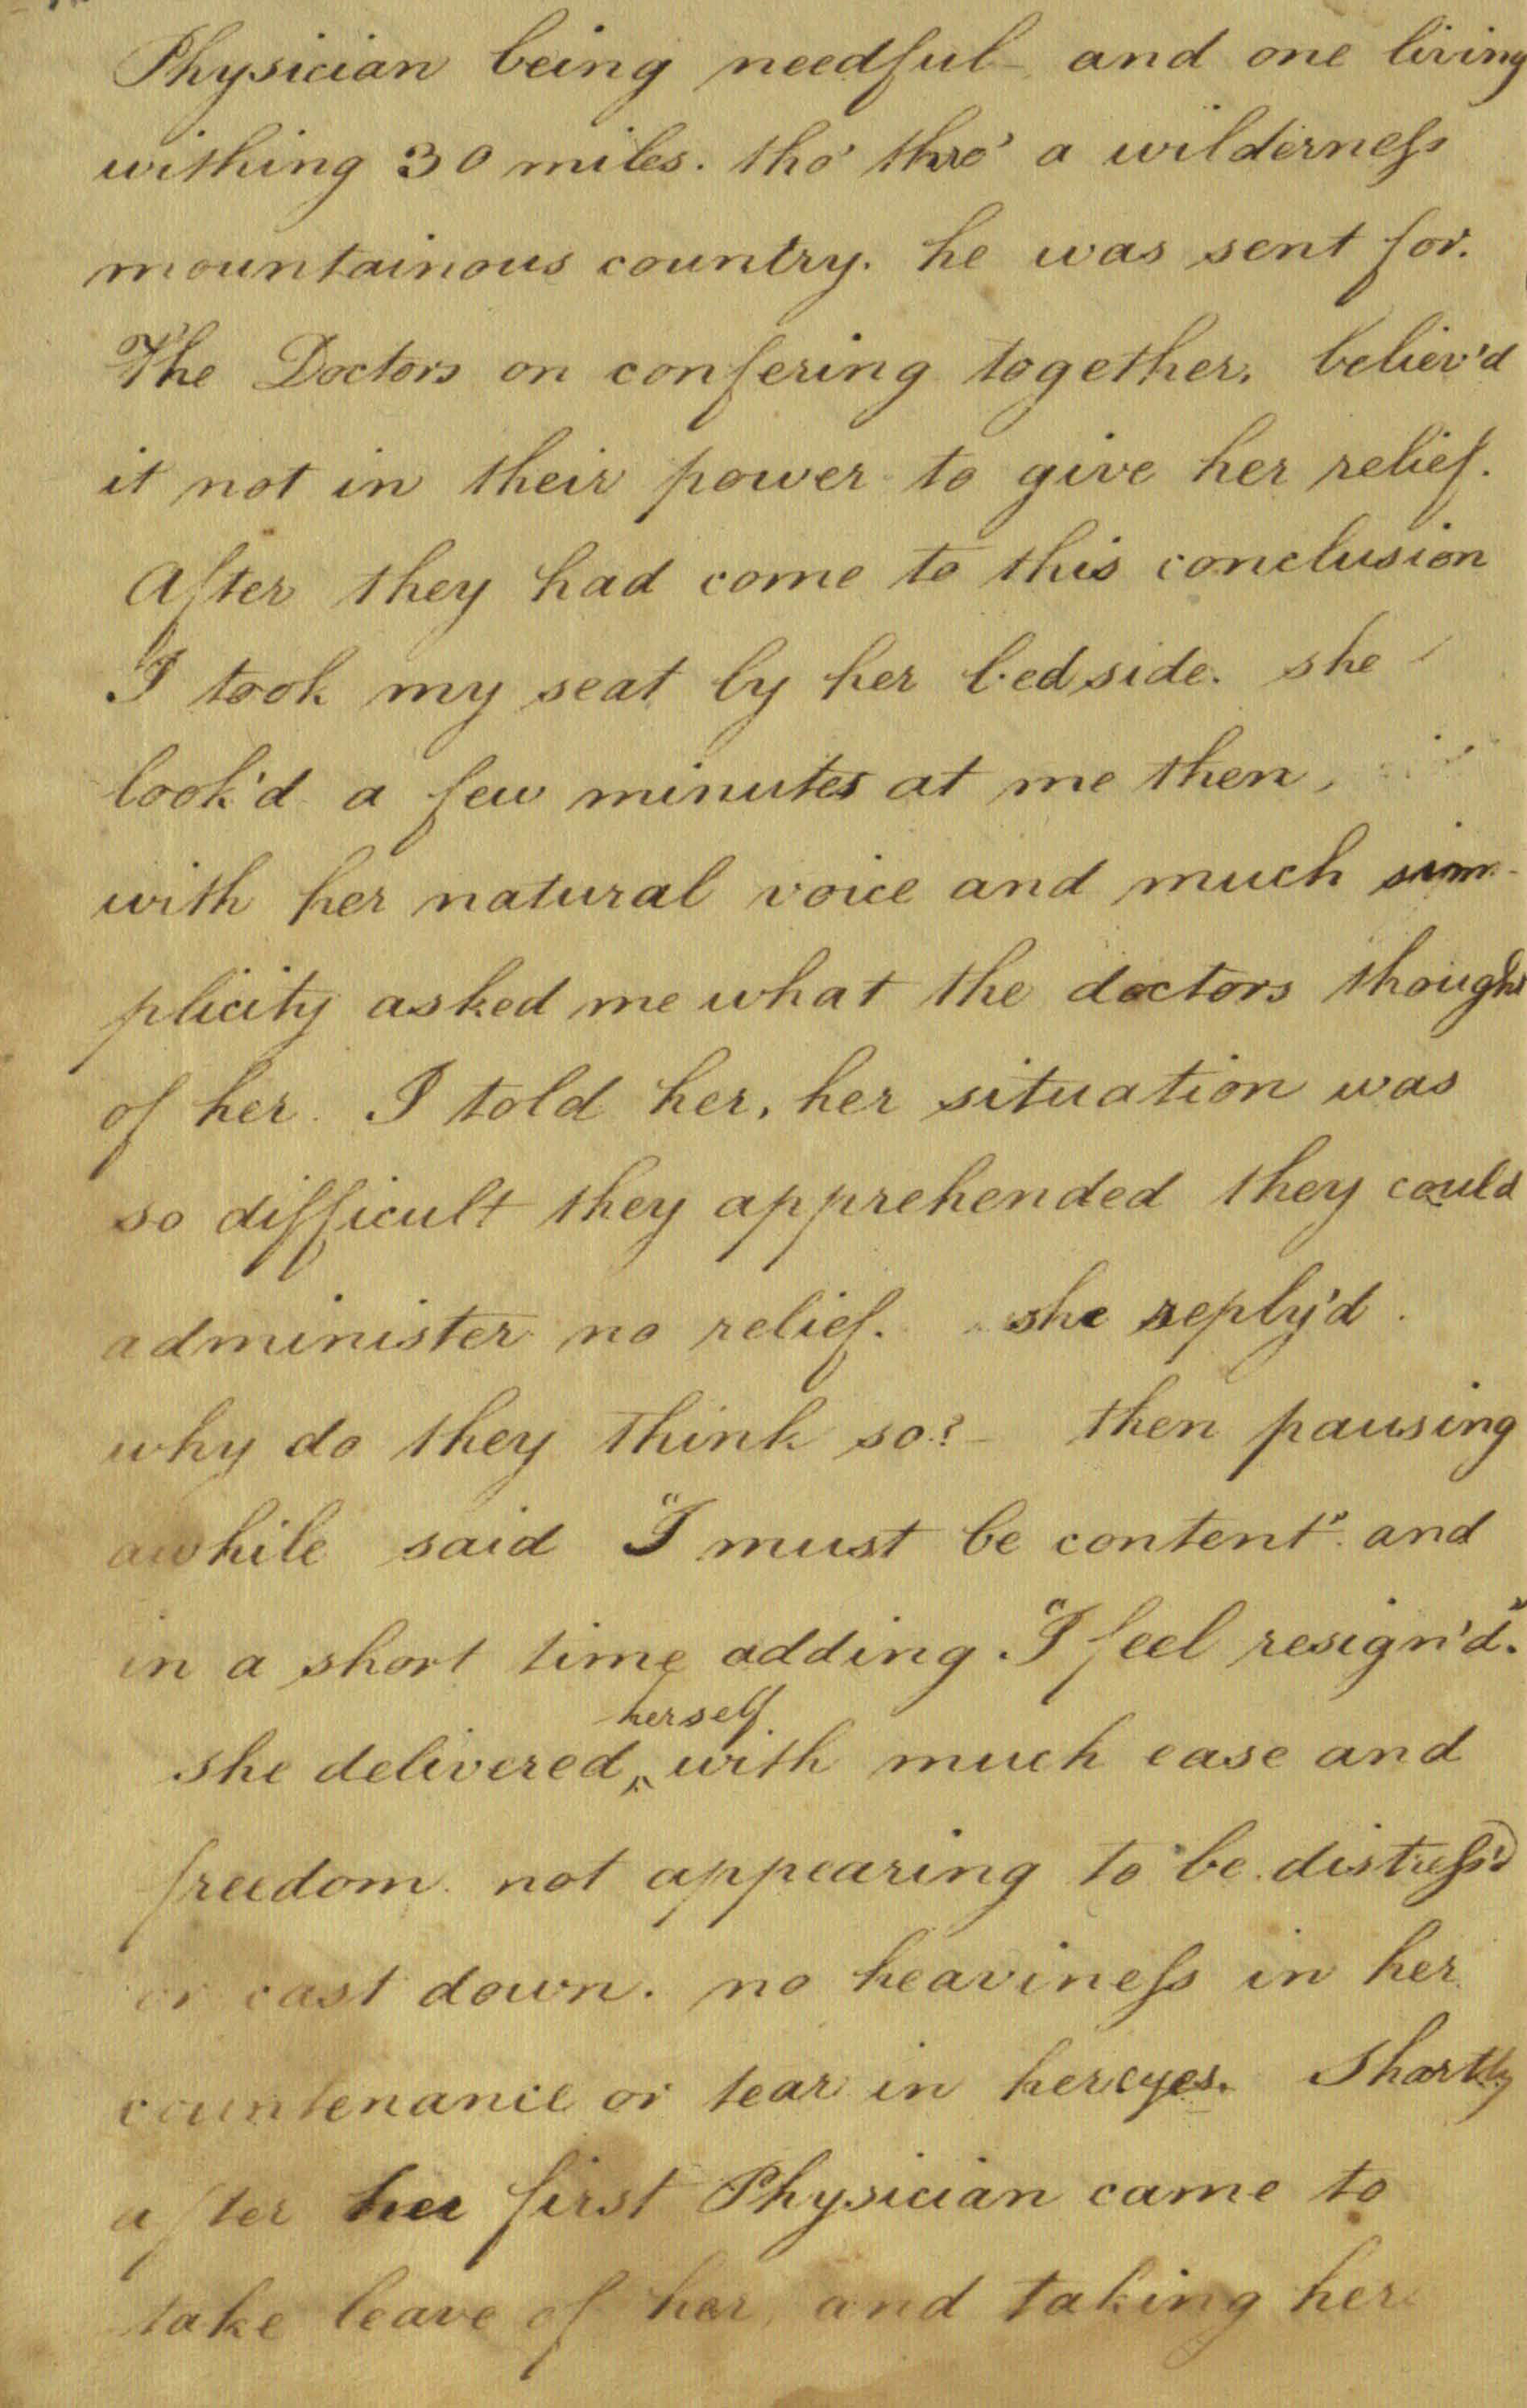 Physician being needful - and one living
withing 30 miles. tho' thro' a wilderness
mountainous country. he was sent for.
The Doctors on confering together, believ'd
it not in their power to give her relief.
After they had come to this conclusion
I took my seat by her bedside. she
look'd a few minutes at me then,
with her natural voice and much sim-
plicity asked me what the doctors thought
of her. I told her, her situation was
so difficult they apprehended they could
administer no relief. she reply'd.
why do they think so? - then pausing
awhile said "I must be content". and
in a short time adding. "I feel resign'd".
herself
she delivered, ^ with much ease and
freedom. not appearing to be distress'd
or cast down. no heaviness in her
countenance or tear in her eyes. Shortly
after her first Physician came to
take leave of her, and taking her